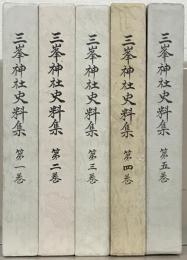 三峯神社史料集 第一巻
三峯神社史料集 第二巻
三峯神社史料集 第三巻
三峯神社史料集 第四巻
三峯神社史料集 第五巻